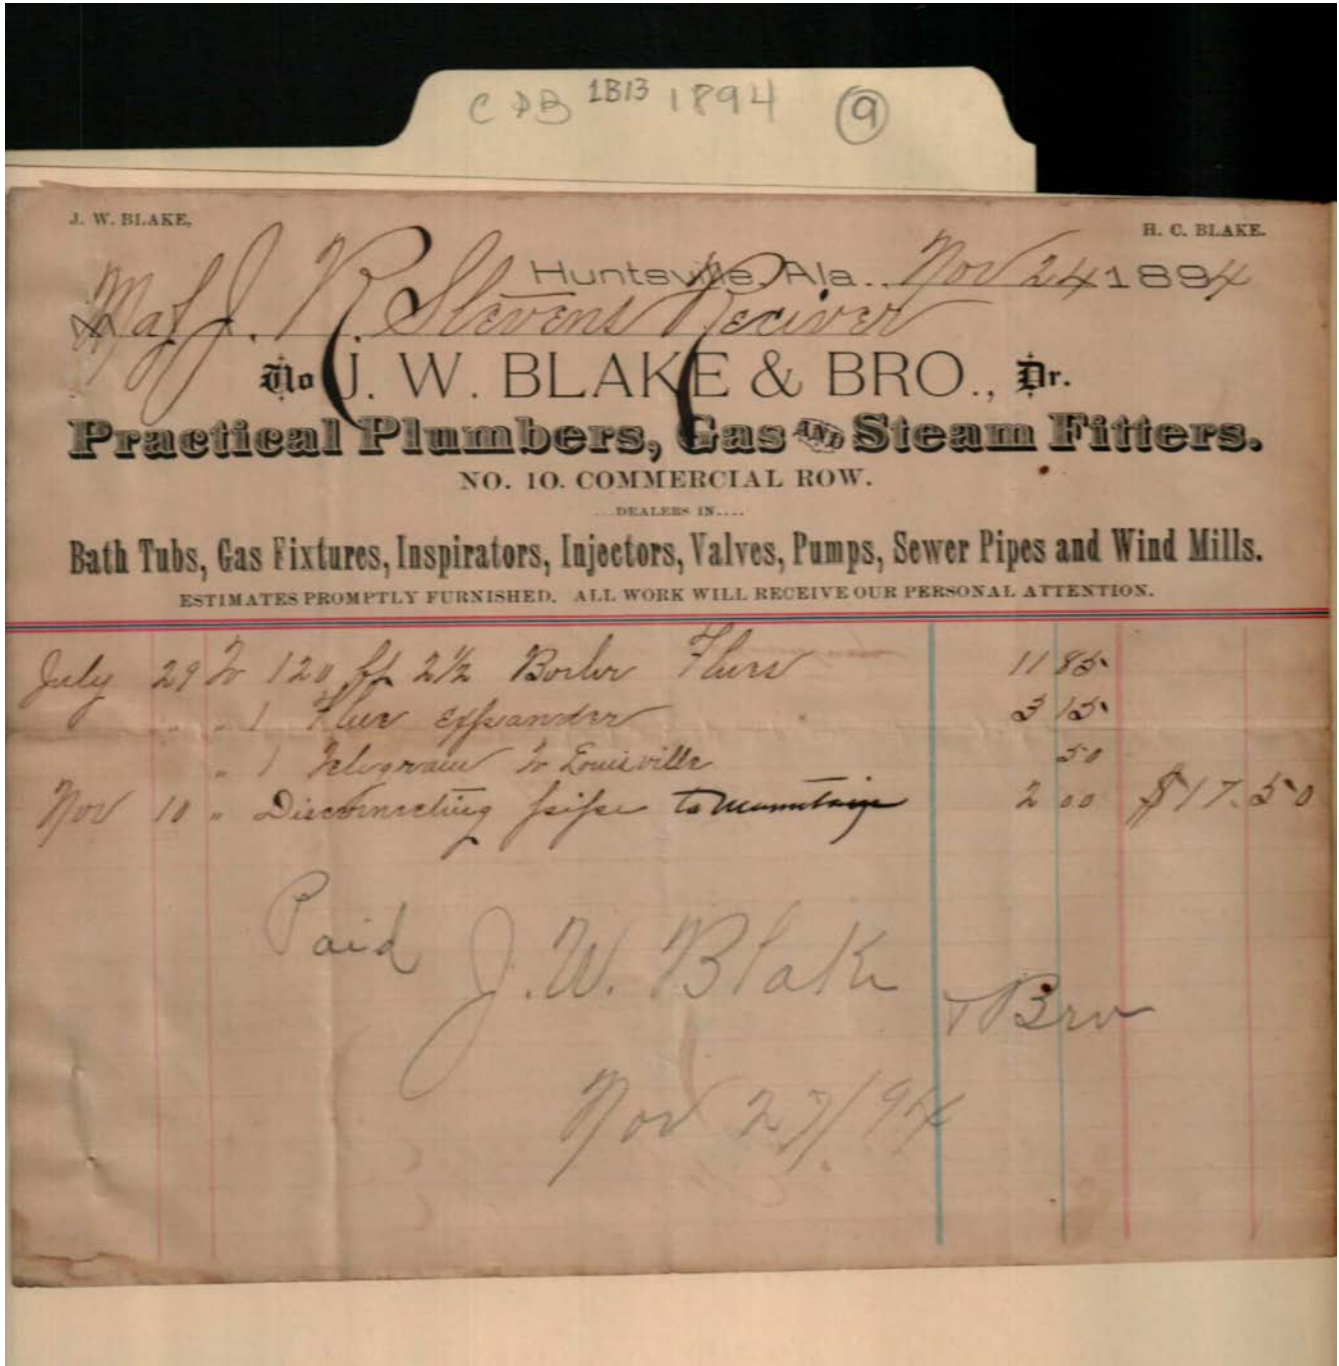 C D B 1B13 1894 9
J. W. BLAKE, H. C. BLAKE.
Huntsville, Ala... Nov 24 1894
Maj J. R. Stevens Reciver
To J. W. BLAKE & BRO., Dr.
Practical Plumbers, Gas AND Steam Fitters.
NO. 10. COMMERCIAL ROW.
....DEALERS IN....
Bath Tubs, Gas Fixtures, Inspirators, Injectors, Valves, Pumps, Sewer Pipes and Wind Mills.
ESTIMATES PROMPTLY FURNISHED. ALL WORK WILL RECEIVE OUR PERSONAL ATTENTION.
July 29 To 120 ft 2 1/2 Boiler Flues 11 85
" " 1 Flue expander 3 15
" 1 Telegram to Louisville 50
Nov 10 " Disconnecting pipe to mountain 2 00 $17.50
Paid J. W. Blake
& Bro
Nov 27/94